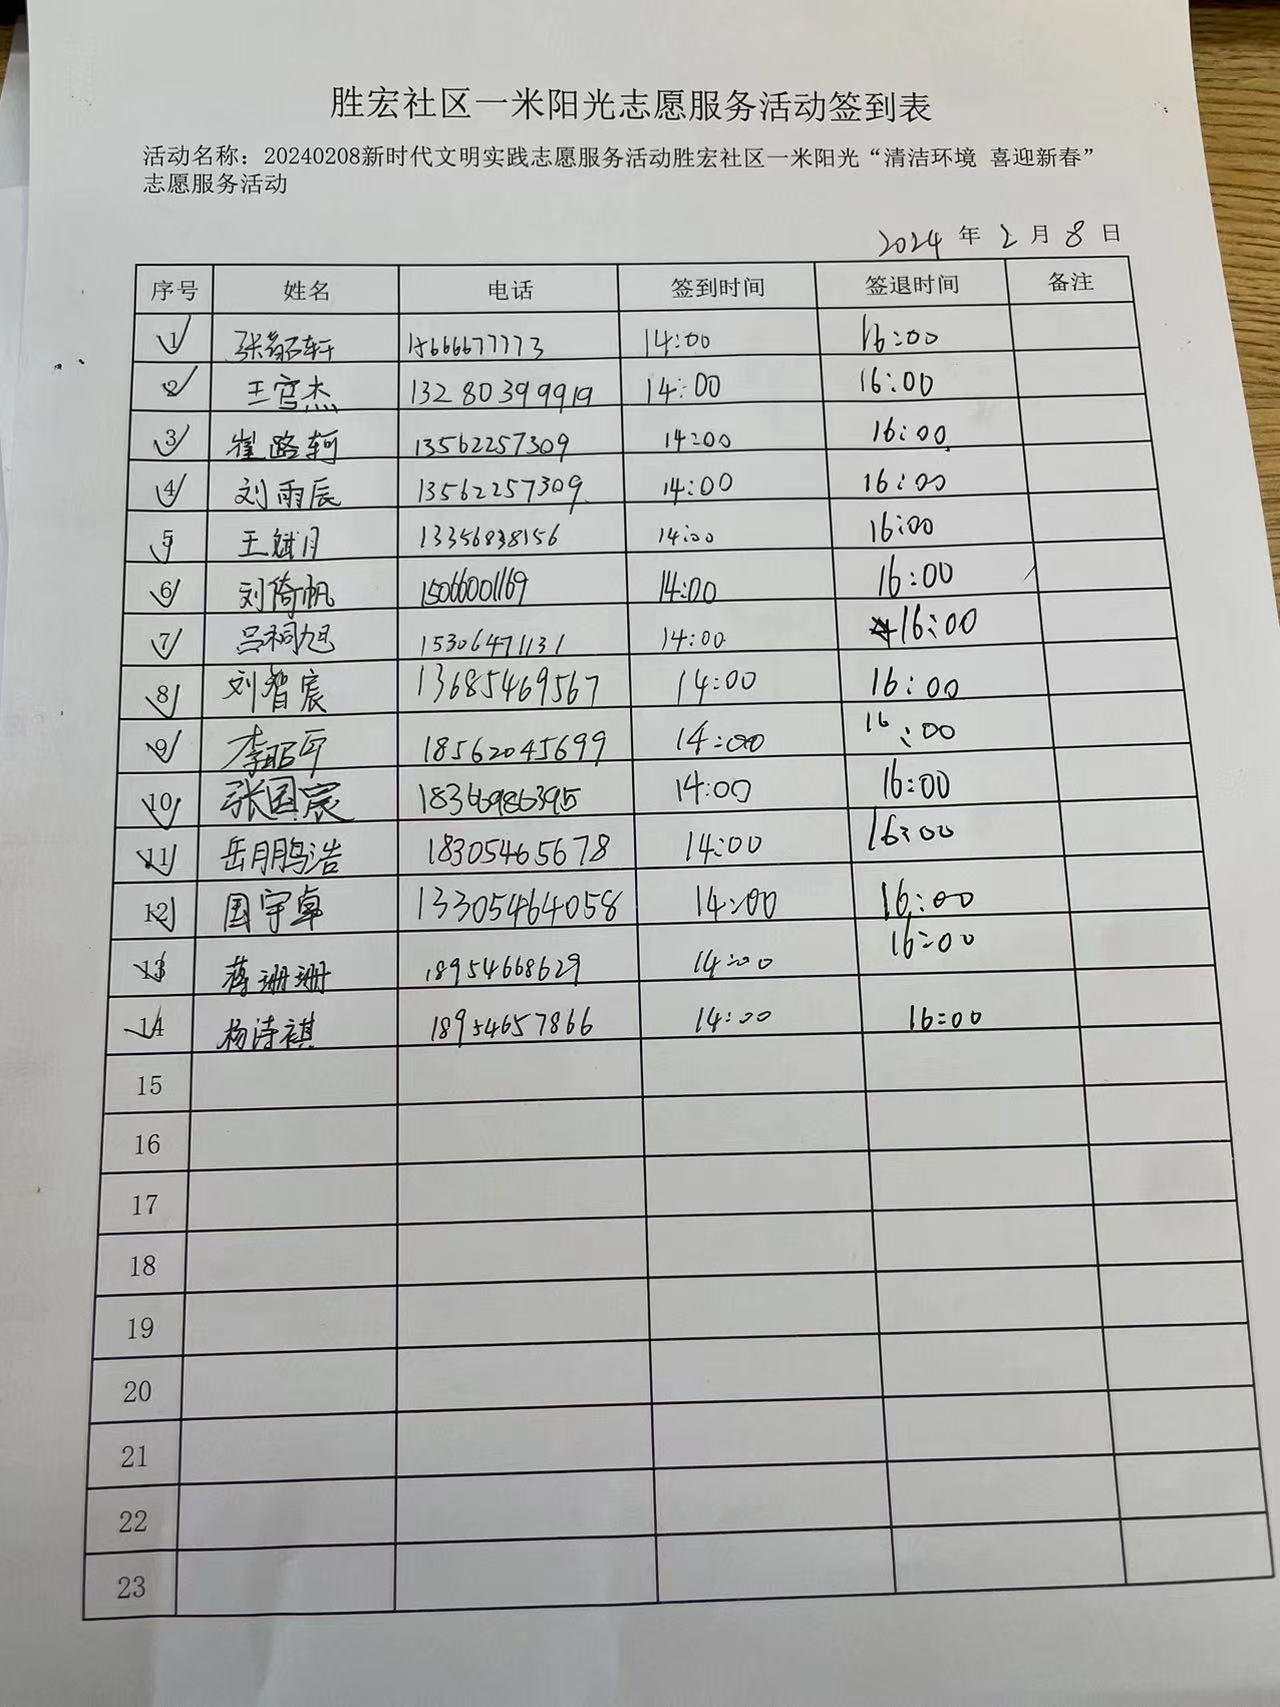 胜宏社区一米阳光志愿服务活动签到表
活动名称：20240208新时代文明实践志愿服务活动胜宏社区一米阳光“清洁环境 喜迎新春”
志愿服务活动
2024 年 2 月 8 日
序号 姓名 电话 签到时间 签退时间 备注
1 张懿轩 15666677773 14:00 16:00
2 王官杰 13280399919 14:00 16:00
3 崔路轲 13562257309 14:00 16:00
4 刘雨辰 13562257309 14:00 16:00
5 王斌月 13356838156 14:00 16:00
6 刘倚帆 15066001169 14:00 16:00
7 吕祠旭 15306471131 14:00 16:00
8 刘智宸 13685469567 14:00 16:00
9 李昭 18562045699 14:00 16:00
10 张国宸 18366986395 14:00 16:00
11 岳朋鹏浩 18305465678 14:00 16:00
12 国宇卓 13305464058 14:00 16:00
13 蒋珊珊 18954668629 14:00 16:00
14 杨涛祺 18954657866 14:00 16:00
15
16
17
18
19
20
21
22
23